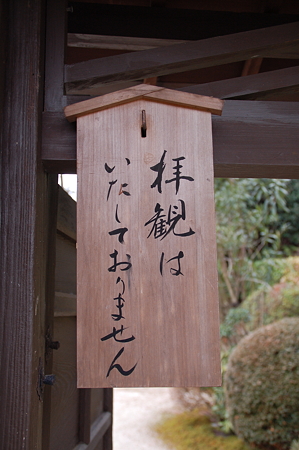 拝観は
いたしておりません